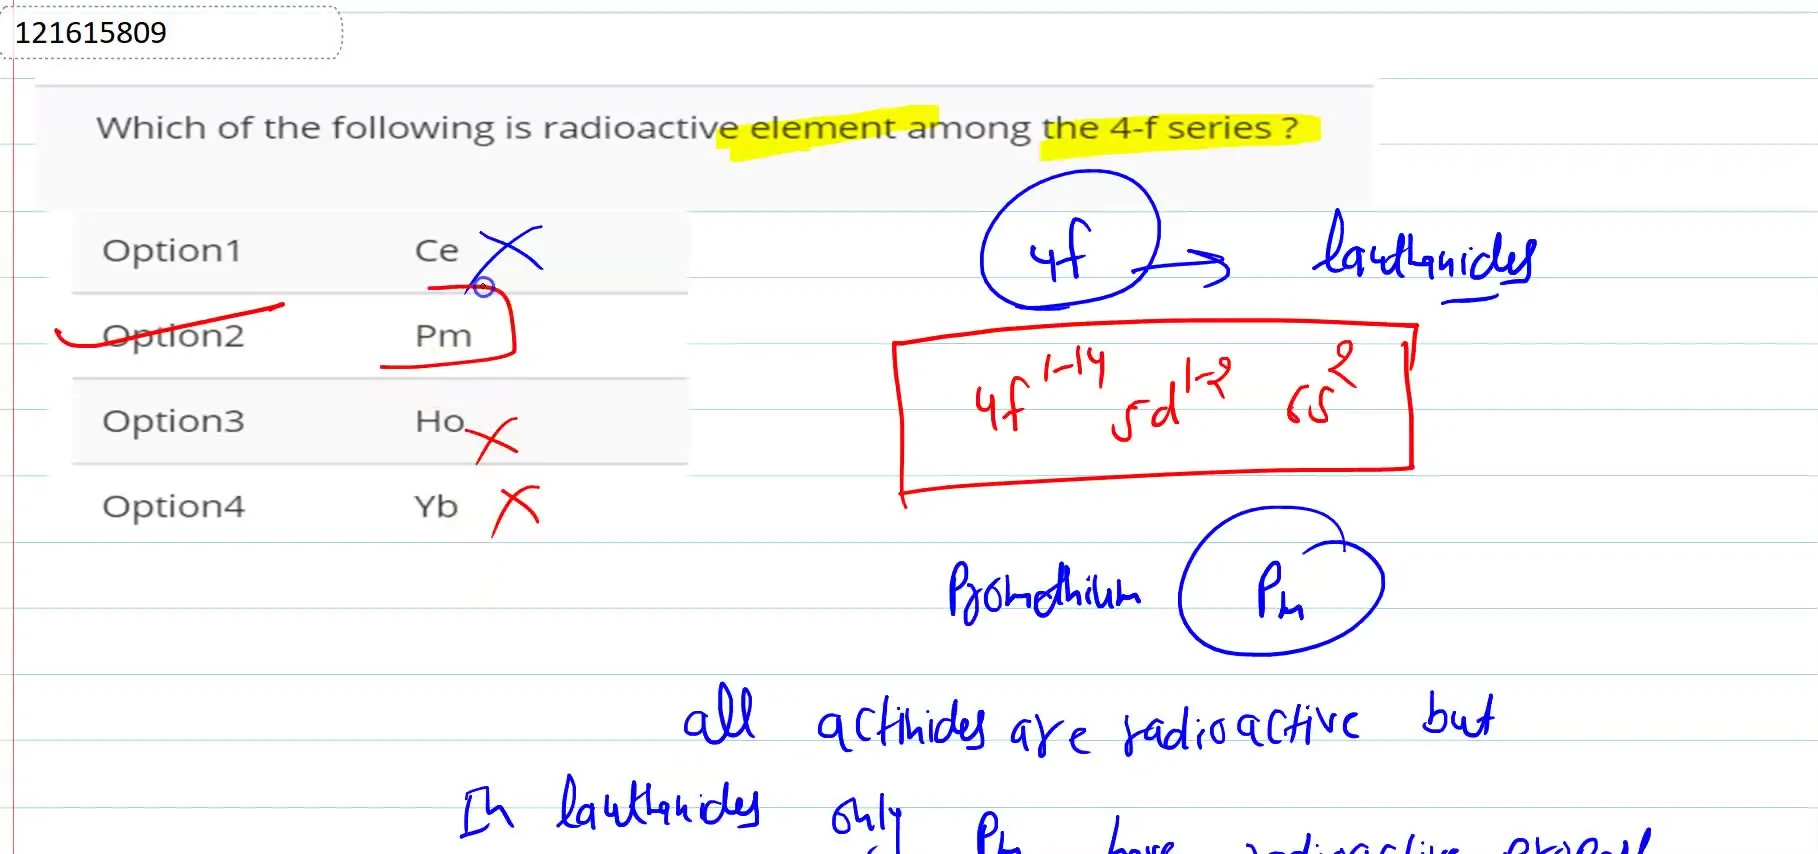 121615809
Which of the following is radioactive element among the 4-f series ?
Option1 Ce
Option2 Pm
Option3 Ho
Option4 Yb
4f → lanthanides
4f 1-14 5d 1-2 6s 2
Promethium Pm
all actinides are radioactive but
In lanthanides only Pm have radioactive